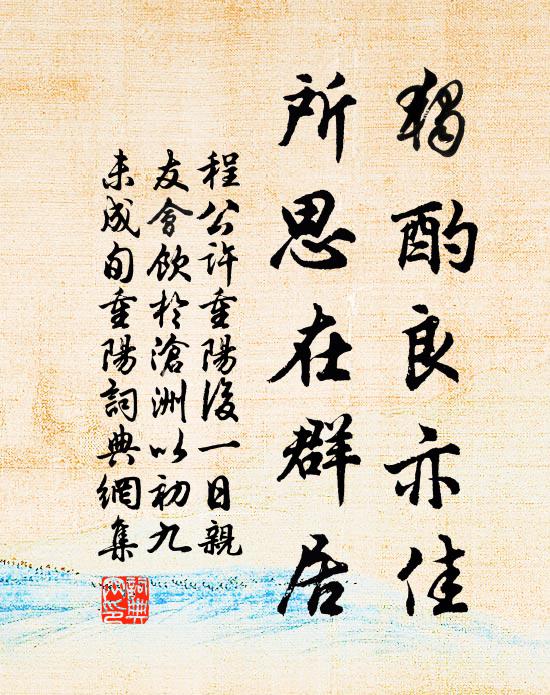 獨酌良亦佳
所思在群居
程公許重陽後一日親
友會飲於滄洲以初九
未成旬重陽詞典網集